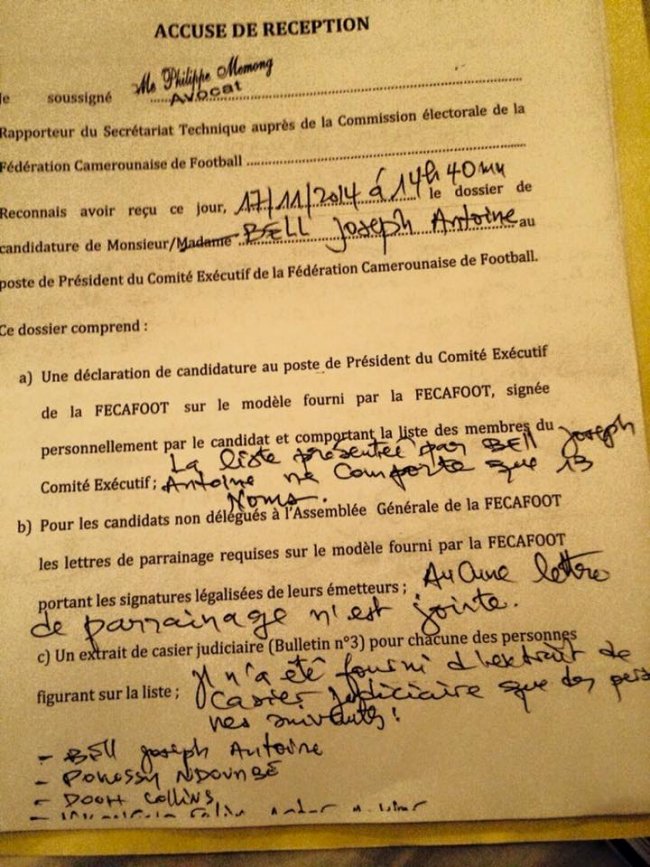 ACCUSE DE RECEPTION
Je soussigné Me Philippe Memong
Avocat
Rapporteur du Secrétariat Technique auprès de la Commission électorale de la
Fédération Camerounaise de Football
Reconnais avoir reçu ce jour, 17/11/2014 à 14h40mn le dossier de
candidature de Monsieur/Madame BELL Joseph Antoine au
poste de Président du Comité Exécutif de la Fédération Camerounaise de Football.
Ce dossier comprend :
a) Une déclaration de candidature au poste de Président du Comité Exécutif
de la FECAFOOT sur le modèle fourni par la FECAFOOT, signée
personnellement par le candidat et comportant la liste des membres du
La liste présentée par BELL Joseph
Comité Exécutif ; Antoine ne comporte que 13
Noms.
b) Pour les candidats non délégués à l'Assemblée Générale de la FECAFOOT
les lettres de parrainage requises sur le modèle fourni par la FECAFOOT
portant les signatures légalisées de leurs émetteurs ; Aucune lettre
de parrainage n'est jointe.
c) Un extrait de casier judiciaire (Bulletin n°3) pour chacune des personnes
figurant sur la liste ; Il n'a été fourni d'extrait de
Casier judiciaire que des person
nes suivantes :
- BELL Joseph Antoine
- POKOSSY NDOUMBÉ
- DOOH Collins